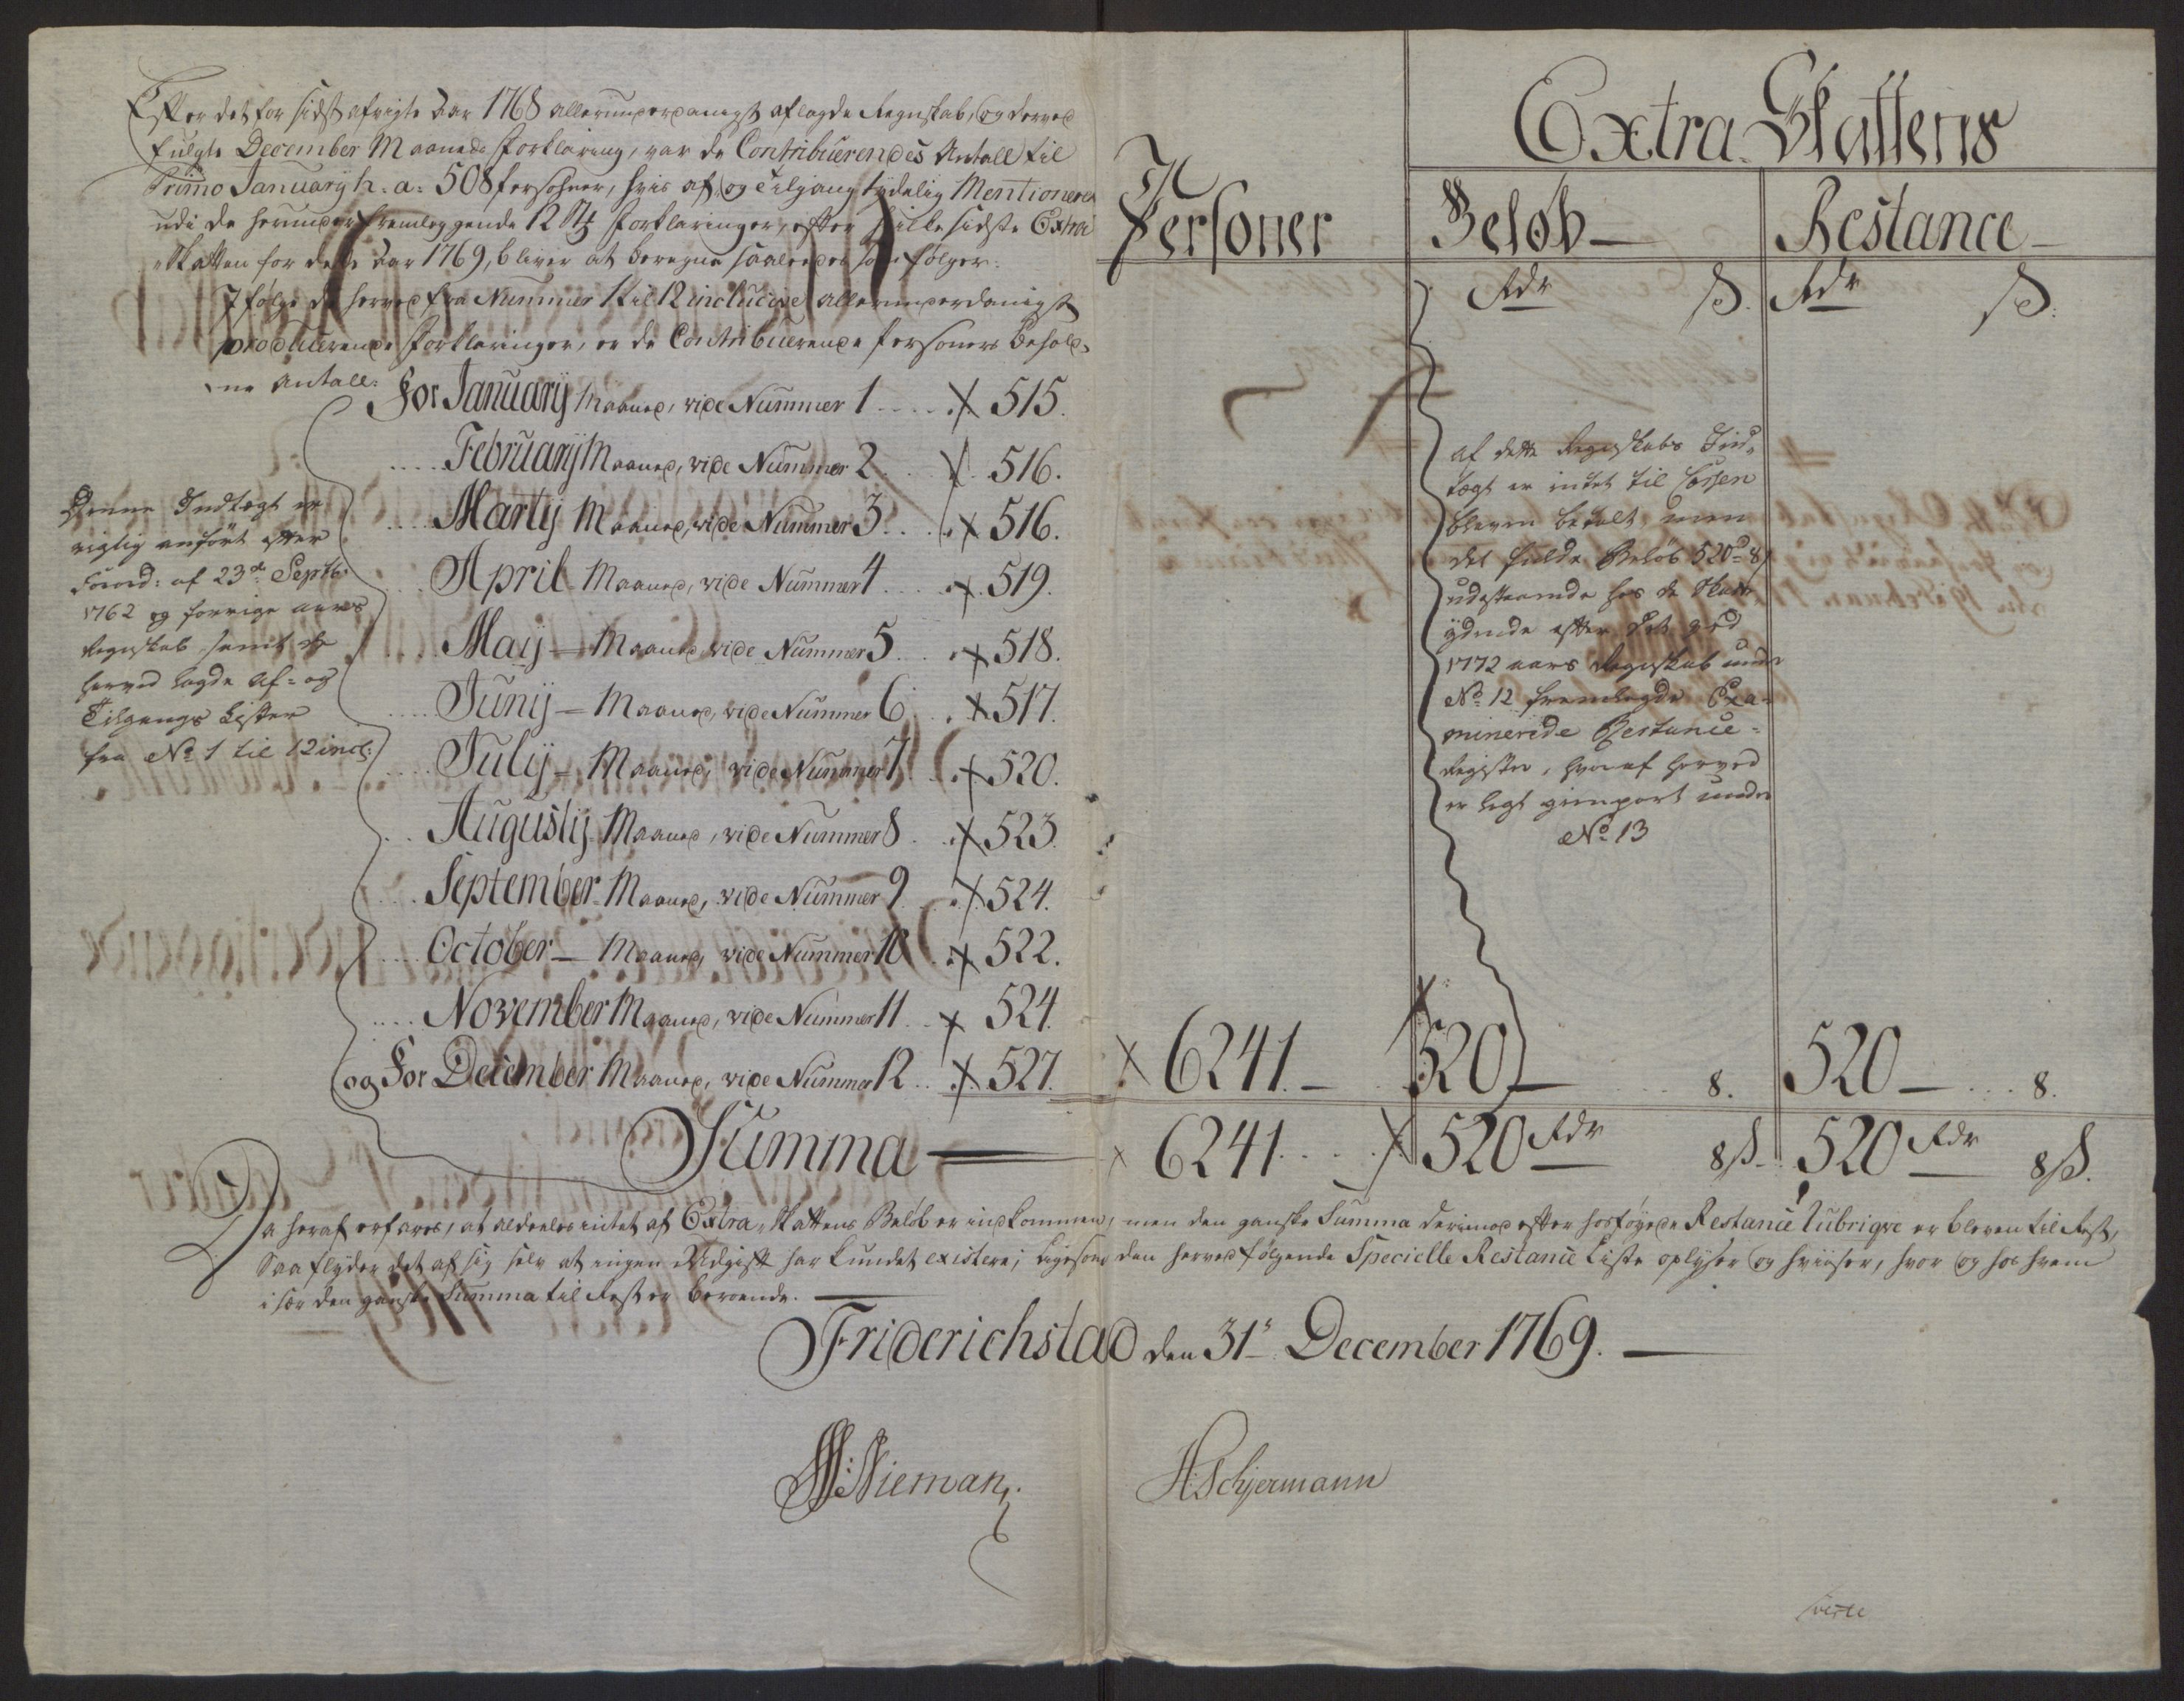 Efter det for sidst afvigte Aar 1768 allerunderdanigst aflagde Regnskab, og derved
fulgte December Maaneds Forklaring, var de Contribuerendes Antall til
Primo January h: a: 508 Persohner, hvis af- og Tilgang tydelig Mentioneres
udi de herunder fremleggende 12 Stk Forklaringer, efter hvilke sidste Extra
Skatten for dette Aar 1769, bliver at beregne saaledes som følger:
Ifølge de herved fra Nummer 1 til 12 inclusive allerunderdanigst
producerende Forklaringer, er de Contribuerende Personers Behold-
ne Antall:
For January Maaned, vide Nummer 1 515.
February Maaned, vide Nummer 2 516.
Marty Maaned, vide Nummer 3 516.
April Maaned, vide Nummer 4 519.
May Maaned, vide Nummer 5 518.
Juny Maaned, vide Nummer 6 517.
July Maaned, vide Nummer 7 520.
Augusty Maaned, vide Nummer 8 523.
September Maaned, vide Nummer 9 524.
October Maaned, vide Nummer 10 522.
November Maaned, vide Nummer 11 524.
og For December Maaned, vide Nummer 12 527.
Denne Indtægt er
rigtig anført efter
Forord: af 23de Septb:
1762 og forrige aars
Regnskab samt de
herved lagde Af- og
Tilgangs Lister
fra No 1 til 12 incl:
Extra Skattens
Personer Beløb Restance
Rdr ß. Rdr ß.
af dette Regnskabs Ind-
tægt er intet til Cassen
bleven betalt men
det fulde Beløb 520 rd 8 ß
udestaaende hos de Skatt
ydende efter det ved
1772 aars Regnskab under
No 12 fremlagde Exa-
minerede Restance-
Register, hvoraf herved
er lagt gienpart under
No 13
6241. 520 8. 520 8.
Summa 6241 520 Rdr 8 ß. 520 Rdr 8 ß.
Da heraf erfares, at aldeeles intet af Extra Skattens Beløb er indkommen, men den ganske Summa derimod efter hosføyede Restance Rubrique er bleven til Rest,
Saa flyder det af sig selv at ingen Udgift har kundet existere; ligesom den herved følgende Specielle Restance Liste oplyser og hviiser, hvor og hos hvem
i sær den ganske Summa til Rest er beroende.
Friderichstad den 31te December 1769.
Nieman. H: Schjermann